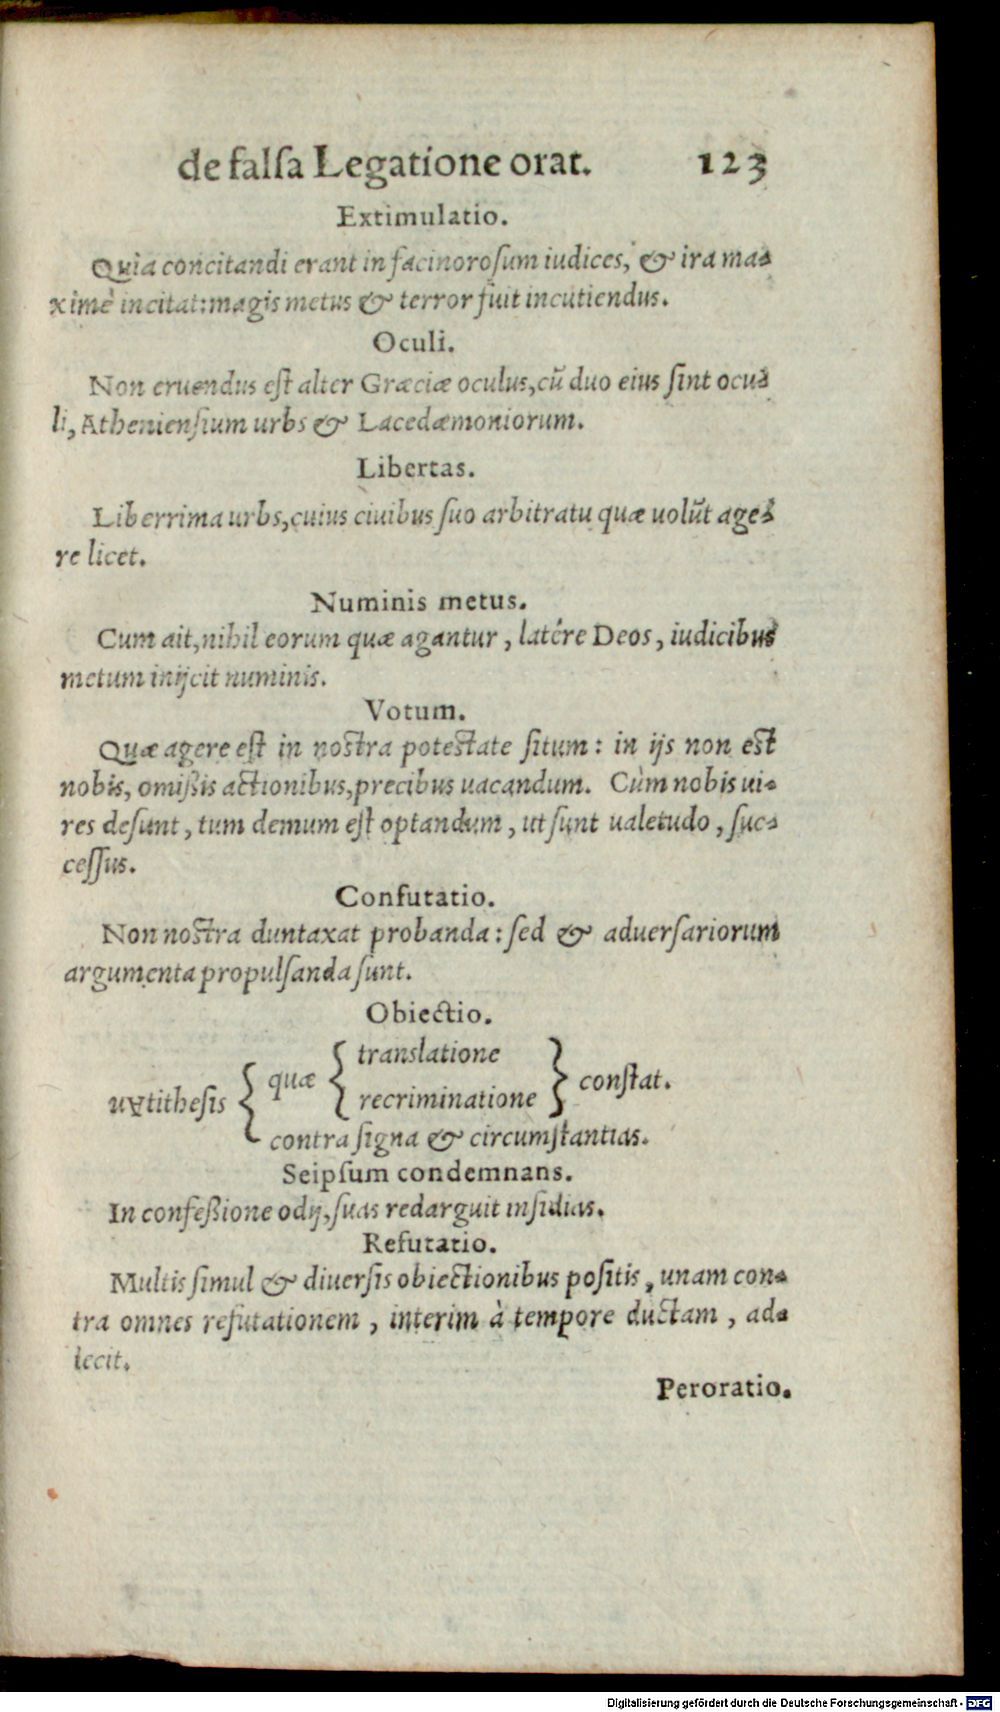 de falſa Legatione orat. 123
Extimulatio.
Quia concitandi erant in facinoroſum iudices, & ira ma-
ximè incitat: magis metus & terror fuit incutiendus.
Oculi.
Non eruendus eſt alter Græciæ oculus, cũ duo eius ſint ocu-
li, Athenienſium urbs & Lacedæmoniorum.
Libertas.
Liberrima urbs, cuius ciuibus ſuo arbitratu quæ uolũt age-
re licet.
Numinis metus.
Cum ait, nihil eorum quæ agantur, latére Deos, iudicibus
metum inijcit numinis.
Votum.
Quæ agere eſt in noſtra poteſtate ſitum: in ijs non eſt
nobis, omißis actionibus, precibus uacandum. Cùm nobis ui-
res deſunt, tum demum eſt optandum, ut ſunt ualetudo, ſuc-
ceſſus.
Confutatio.
Non noſtra duntaxat probanda: ſed & aduerſariorum
argumenta propulſanda ſunt.
Obiectio.
translatione
quæ constat.
recriminatione
tithesis
contra ſigna & circumſtantias.
Seipſum condemnans.
In confeßione odij, ſuas redarguit inſidias.
Refutatio.
Multis ſimul & diuerſis obiectionibus poſitis, unam con-
tra omnes refutationem, interim à tempore ductam, ad-
iecit.
Peroratio.
Digitalisierung gefördert durch die Deutsche Forschungsgemeinschaft - DFG